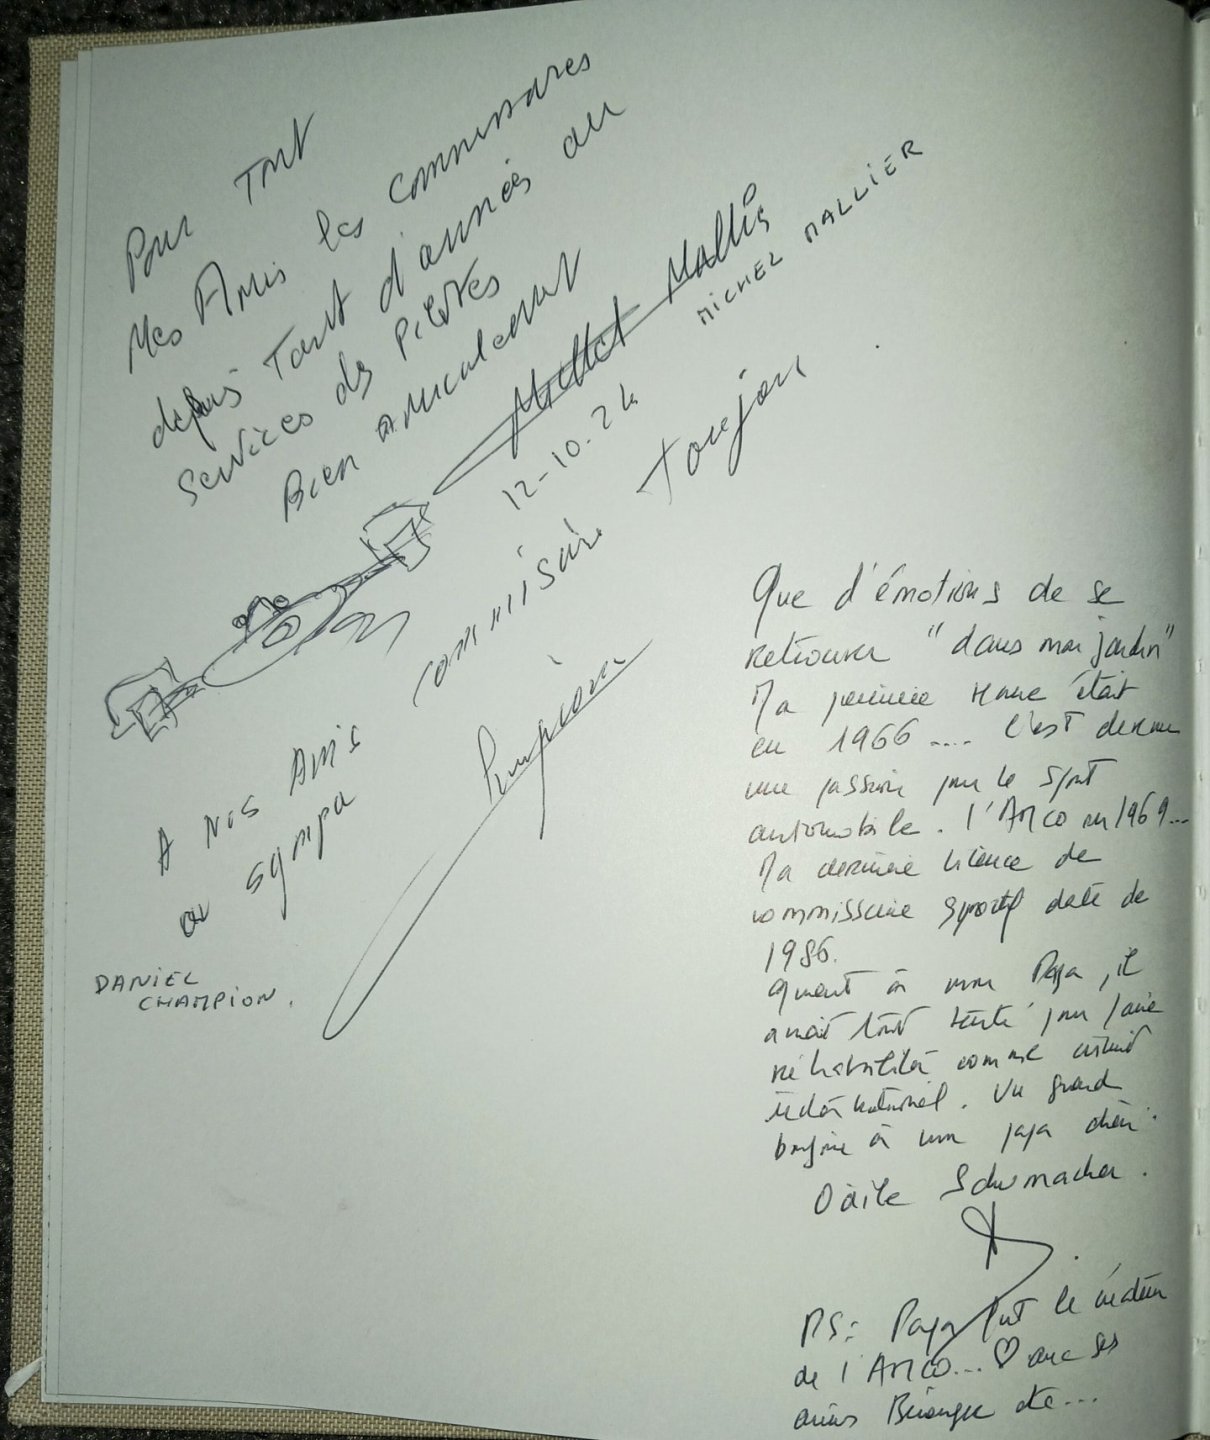 Pour Tout
Mes Amis les Commissaires
depuis Tant d'années au
Services des Pilotes
Bien Amicalement
MICHEL MALLIER
12-10-24
A Nos Amis commissaire Toujour
au sympa
DANIEL
CHAMPION.
Que d'émotions de se
retrouver "dans mon jardin"
Ma première revue était
en 1966 .... C'est devenu
une passion pour le Sport
automobile. l'AMCO en 1969...
Ma dernière licence de
commissaire sportif date de
1986.
Quant à mon Papa, il
avait tout tenté pour faire
réhabilité comme circuit
international. Un grand
bonjour à mon papa chéri.
Odile Schumacher.
PS: Papa fut le créateur
de l'AMCO... ♡ avec ses
amis Béranger etc...